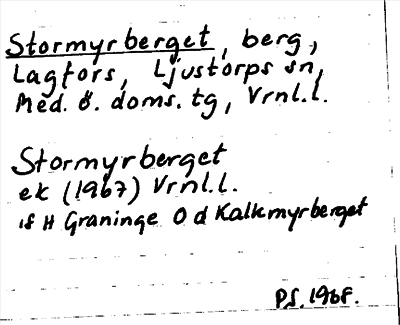 Stormyrberget, berg,
Lagfors, Ljustorps sn,
Med. ö. doms. tg, Vrnl.l.
Stormyrberget
ek (1967) Vrnl.l.
if H Graninge O d Kalkmyrberget
PS. 1968.